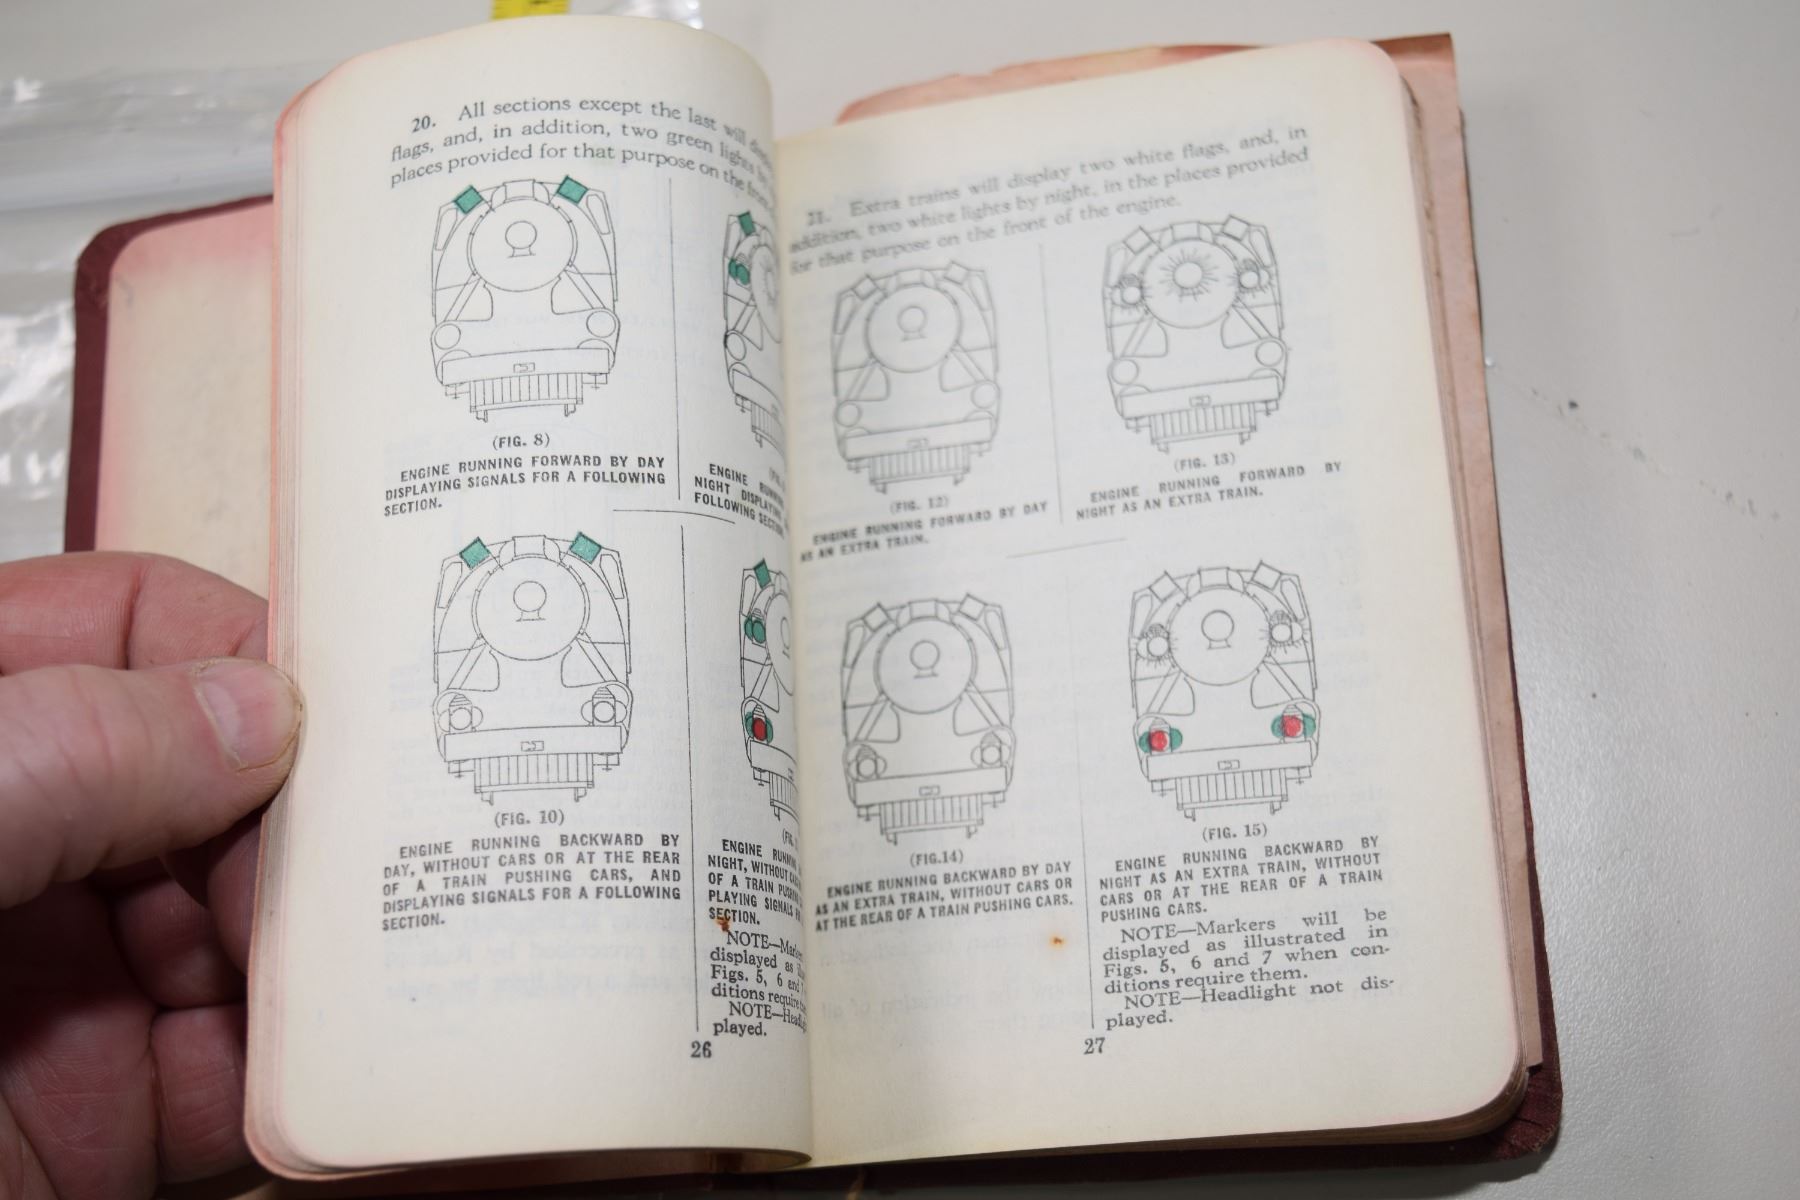 20. All sections except the last will
flags, and, in addition, two green lights
places provided for that purpose on the front
(FIG. 8)
ENGINE RUNNING FORWARD BY DAY
DISPLAYING SIGNALS FOR A FOLLOWING
SECTION.
ENGINE
NIGHT DISPLAYING
FOLLOWING
(FIG. 10)
ENGINE RUNNING BACKWARD BY
DAY, WITHOUT CARS OR AT THE REAR
OF A TRAIN PUSHING CARS, AND
DISPLAYING SIGNALS FOR A FOLLOWING
SECTION.
ENGINE
NIGHT, WITHOUT
OF A TRAIN
PLAYING SIGNALS
SECTION.
NOTE—
displayed as
Figs. 5, 6 and
ditions require
NOTE—
played.
26
21. Extra trains will display two white flags, and, in
addition, two white lights by night, in the places provided
for that purpose on the front of the engine.
(FIG. 12)
ENGINE RUNNING FORWARD BY DAY
AS AN EXTRA TRAIN.
(FIG. 13)
ENGINE RUNNING FORWARD BY
NIGHT AS AN EXTRA TRAIN.
(FIG.14)
ENGINE RUNNING BACKWARD BY DAY
AS AN EXTRA TRAIN, WITHOUT CARS OR
AT THE REAR OF A TRAIN PUSHING CARS.
(FIG. 15)
ENGINE RUNNING BACKWARD BY
NIGHT AS AN EXTRA TRAIN, WITHOUT
CARS OR AT THE REAR OF A TRAIN
PUSHING CARS.
NOTE—Markers will be
displayed as illustrated in
Figs. 5, 6 and 7 when con-
ditions require them.
NOTE—Headlight not dis-
played.
27